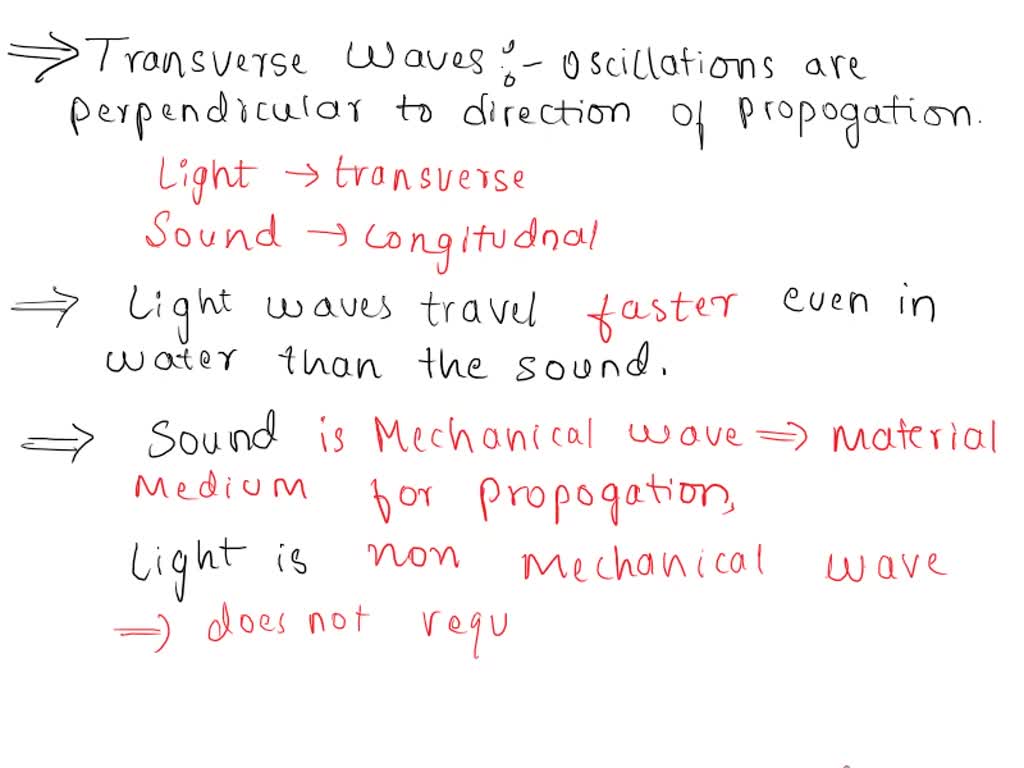 ⇒ Transverse waves :- oscillations are
perpendicular to direction of propogation.
Light → transverse
Sound → longitudnal
⇒ Light waves travel faster even in
water than the sound.
⇒ Sound is Mechanical wave ⇒ material
Medium for propogation,
Light is non Mechanical wave
⇒ does not requ